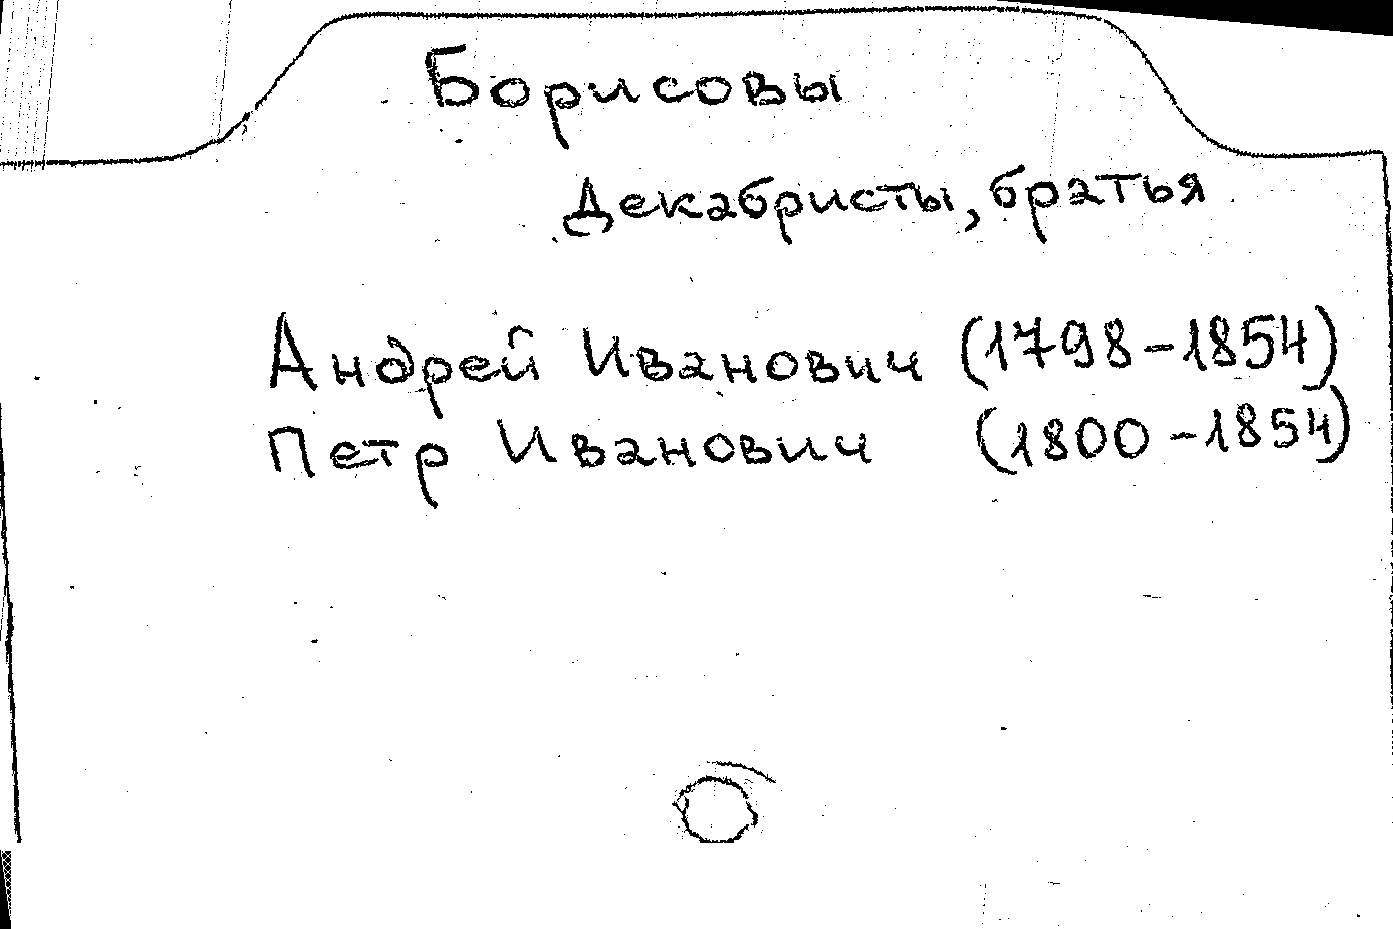 Борисовы
Декабристы, братья
Андрей Иванович (1798-1854)
Петр Иванович (1800-1854)